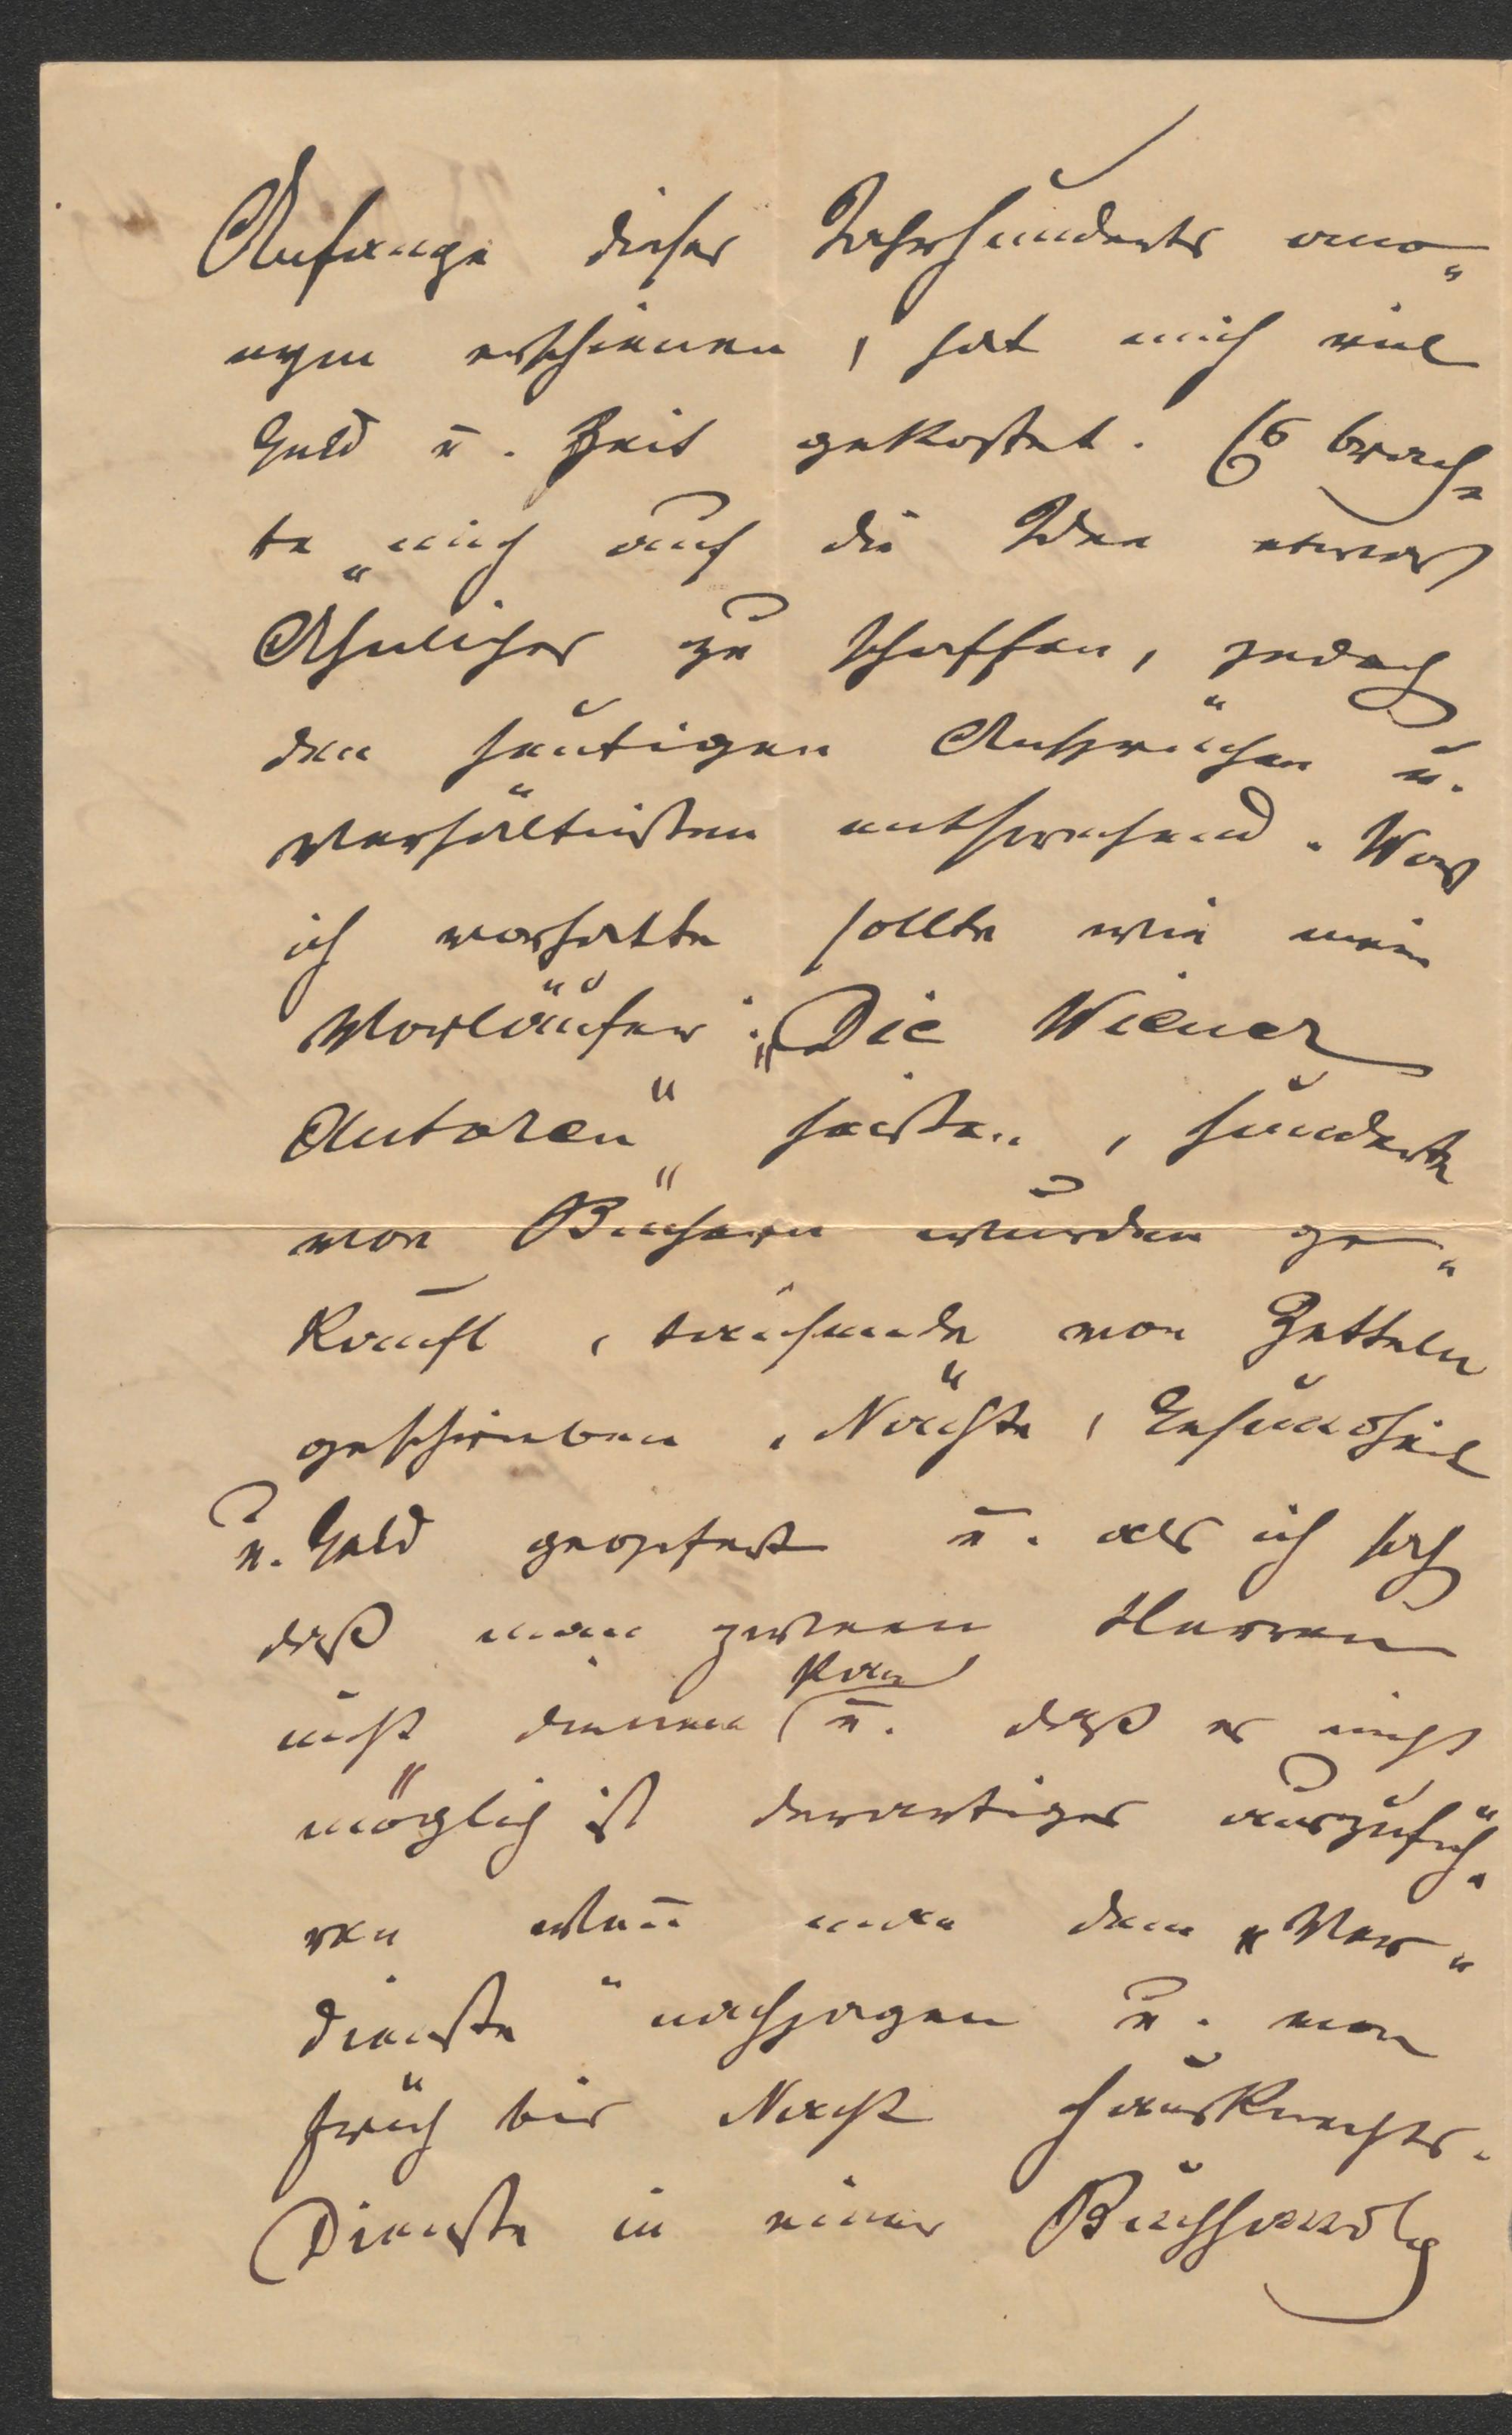 Anfange dieses Jahrhunderts ano-
nym erschienen, hat mich viel
Geld u. Zeit gekostet. Es brach-
te mich auf die Idee etwas
Ähnliches zu schaffen, jedoch
den heutigen Ansprüchen u.
Verhältnißen entsprechend. Was
ich vorhatte sollte wie mein
Vorläufer: „Die Wiener
Autoren“ heißen, hunderte
von Büchern wurden ge-
kauft, tausende von Zetteln
geschrieben, Nächte, Gesundheit
u. Geld geopfert u. als ich sah
daß man zweien Herren
nicht dienen kan u. daß es nicht
möglich ist derartiges auszufüh-
ren wen̄ man dem „Ver-
dienste“ nachjagen u. von
früh bis Nacht Hausknechts-
Dienste in einer Buchhandlg